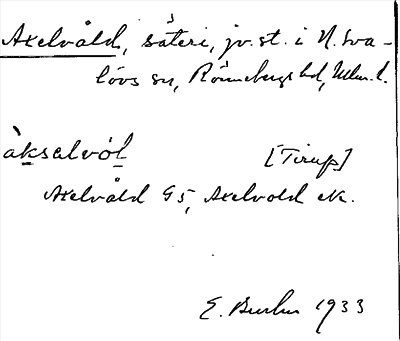 Axelvåld, säteri, jv.st. i N. Sva-
lövs sn, Rönnebergs hd, Mlm. l.
àksalvól [Tirup]
Axelvåld G5, Axelvold ek.
E. Burler 1933